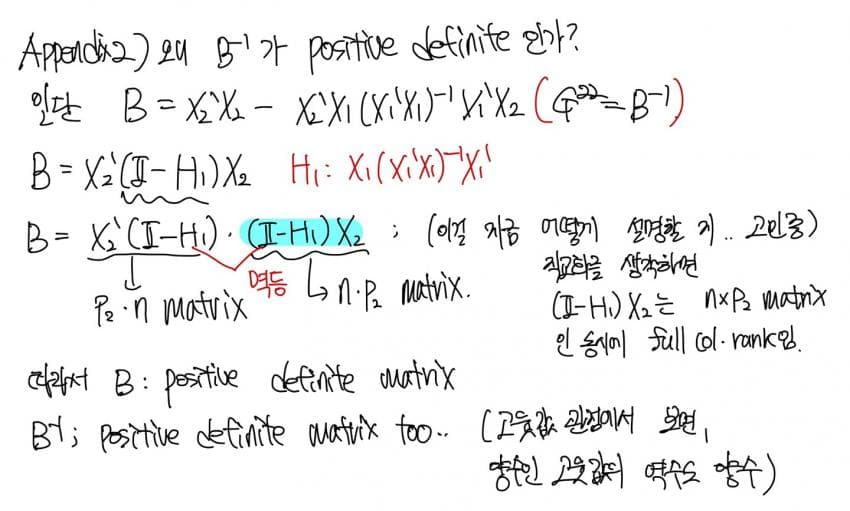 Appendix2) 왜 B⁻¹가 positive definite 인가?
일단 B = X₂'X₂ - X₂'X₁(X₁'X₁)⁻¹X₁'X₂ (G²²=B⁻¹)
B = X₂'(I-H₁)X₂ H₁: X₁(X₁'X₁)⁻¹X₁'
B = X₂'(I-H₁)·(I-H₁)X₂ ; (이걸 지금 어떻게 설명할 지.. 고민중)
멱등
직교화를 생각하면
P₂·n matrix
n·P₂ matrix.
(I-H₁)X₂는 n×P₂ matrix
인 동시에 full col·rank임.
따라서 B : positive definite matrix
B⁻¹; positive definite matrix too.. (고윳값 관점에서 보면,
양수인 고윳값의 역수도 양수)